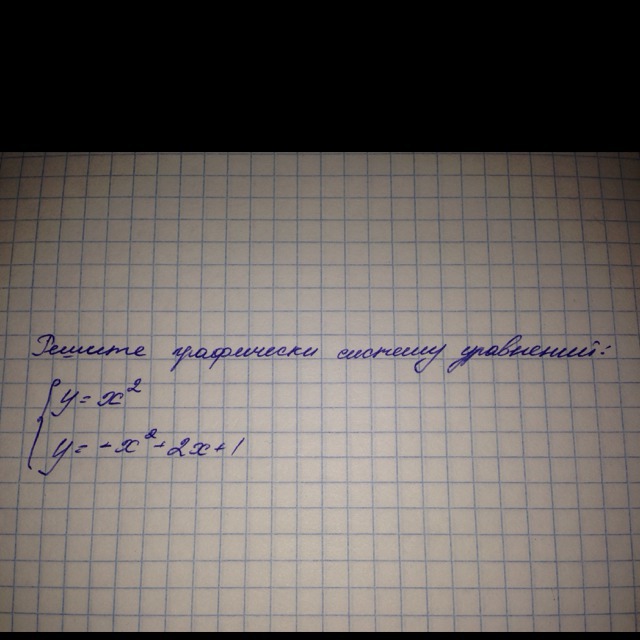 Решите графически систему уравнений:
y = x²
y = -x² + 2x + 1